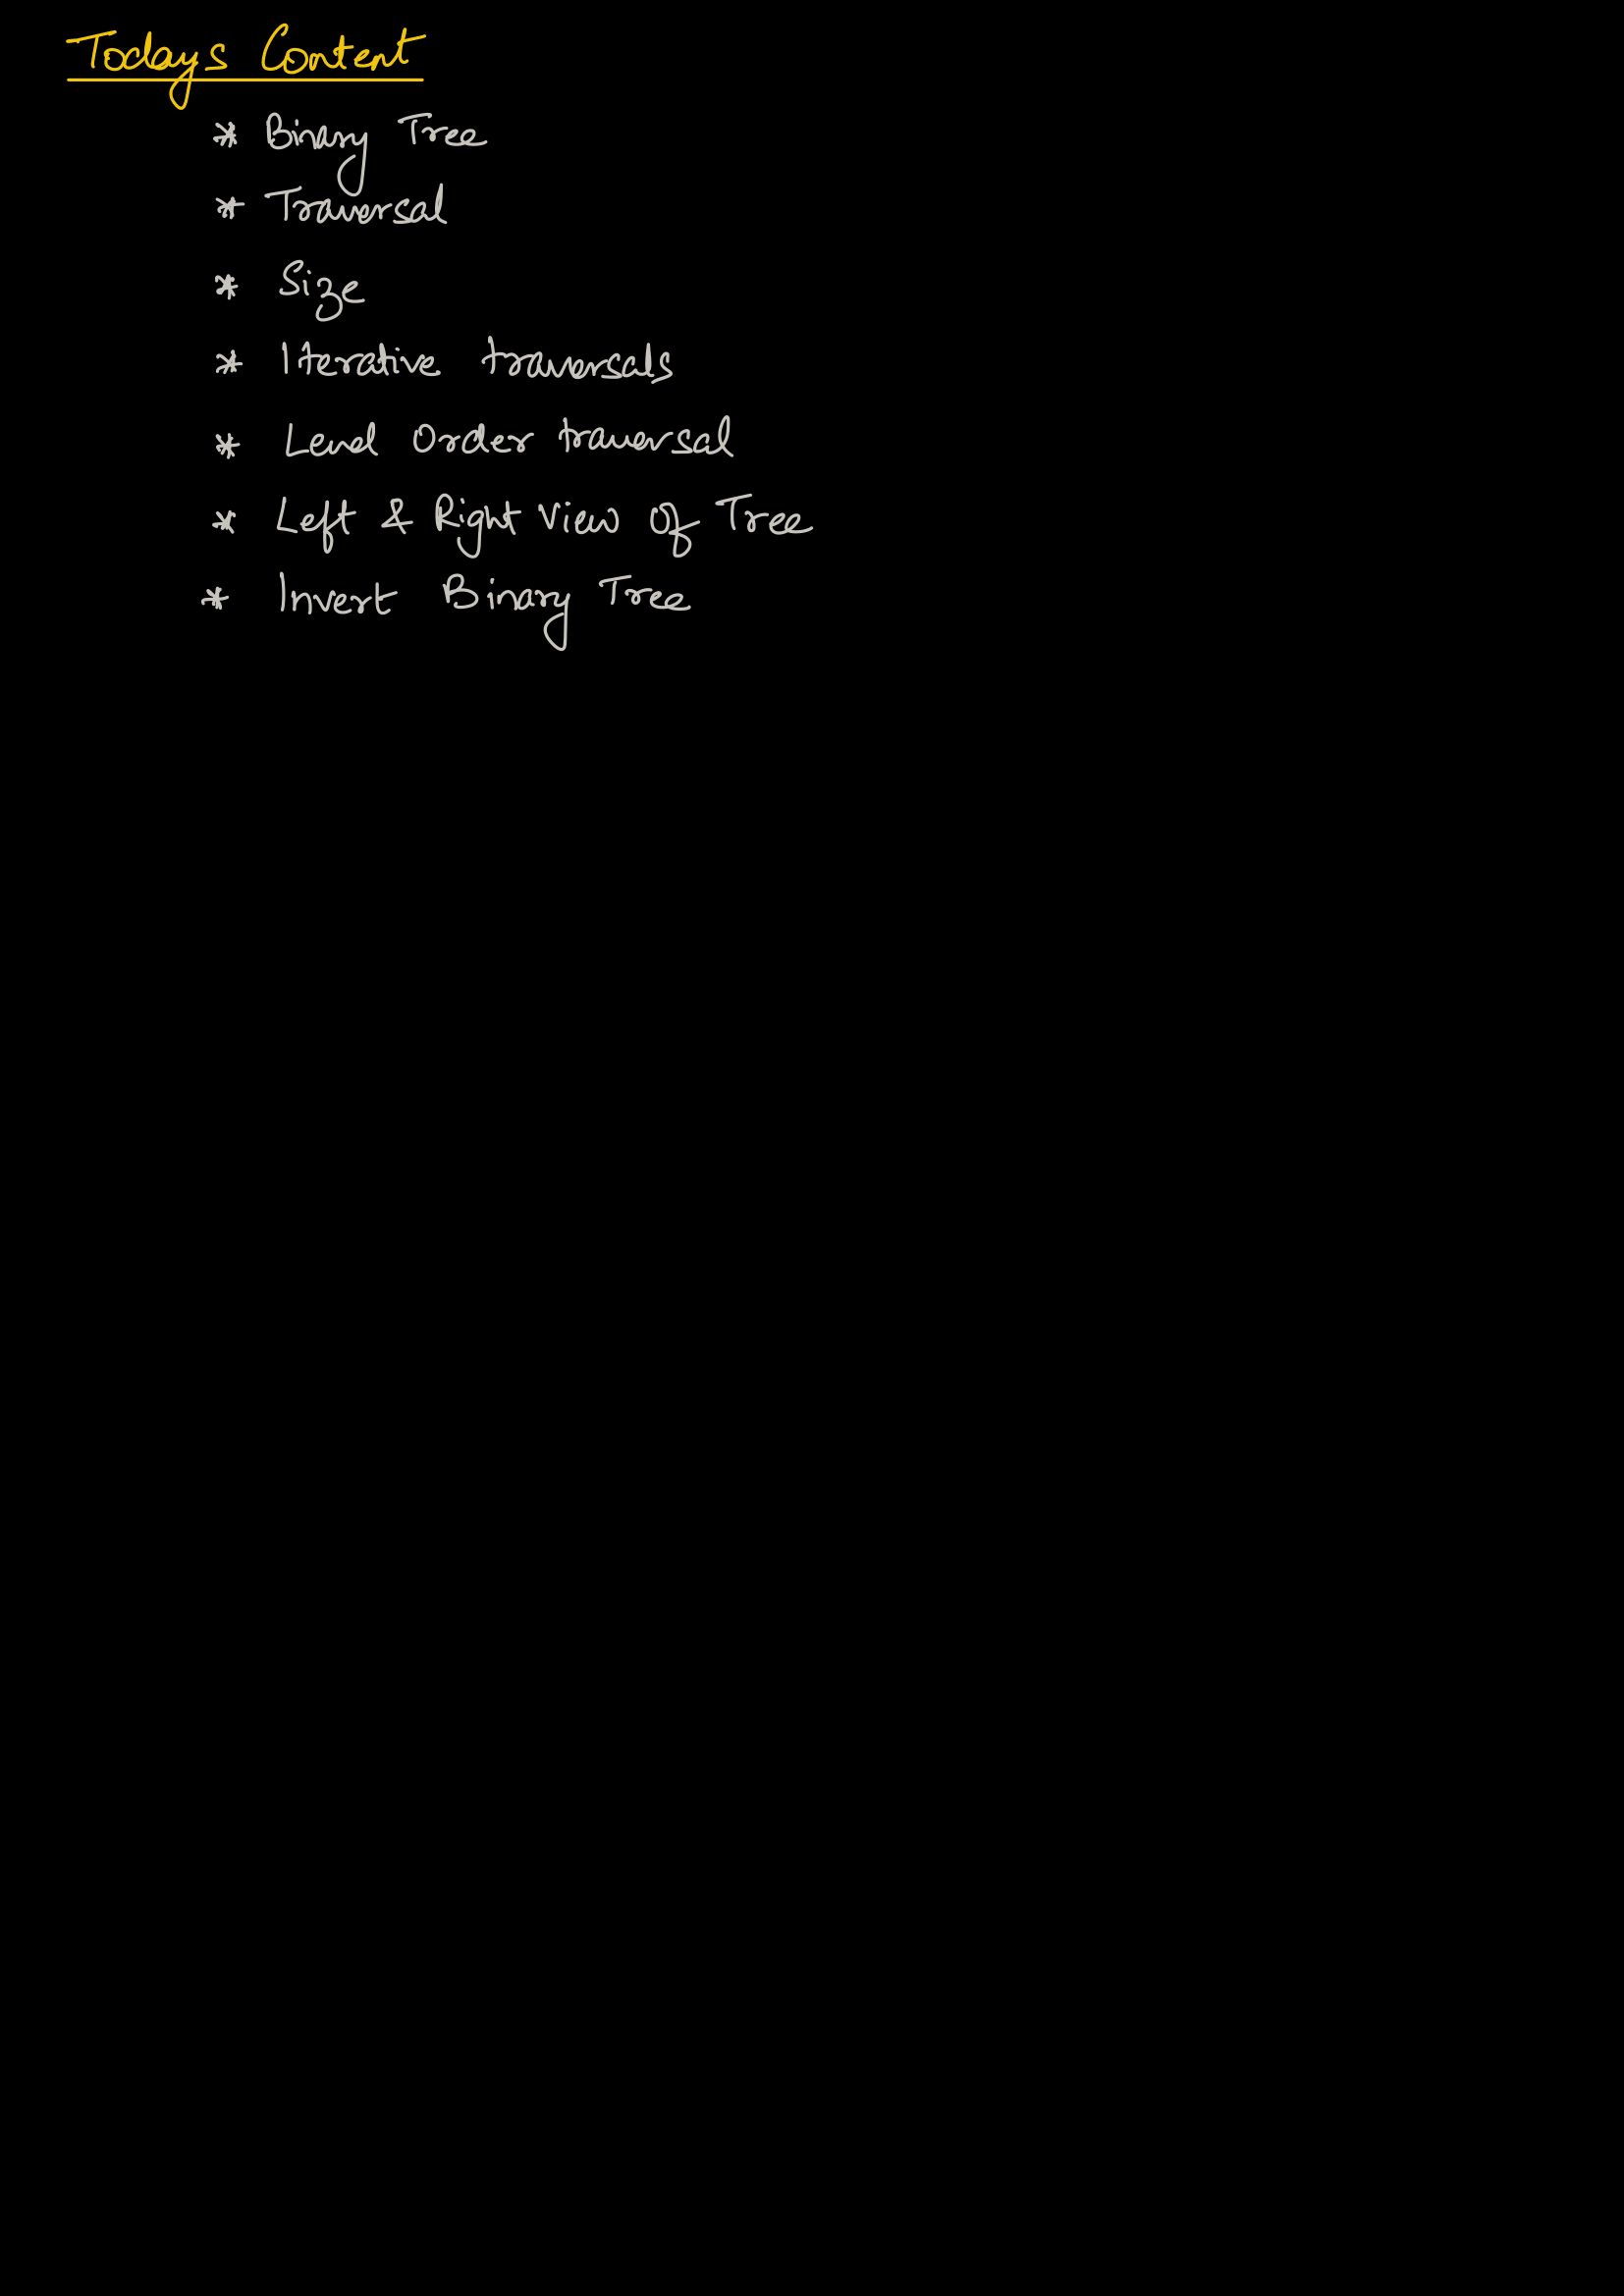 Todays Content
* Binary Tree
* Traversal
* Size
* Iterative traversals
* Level Order traversal
* Left & Right View Of Tree
* Invert Binary Tree